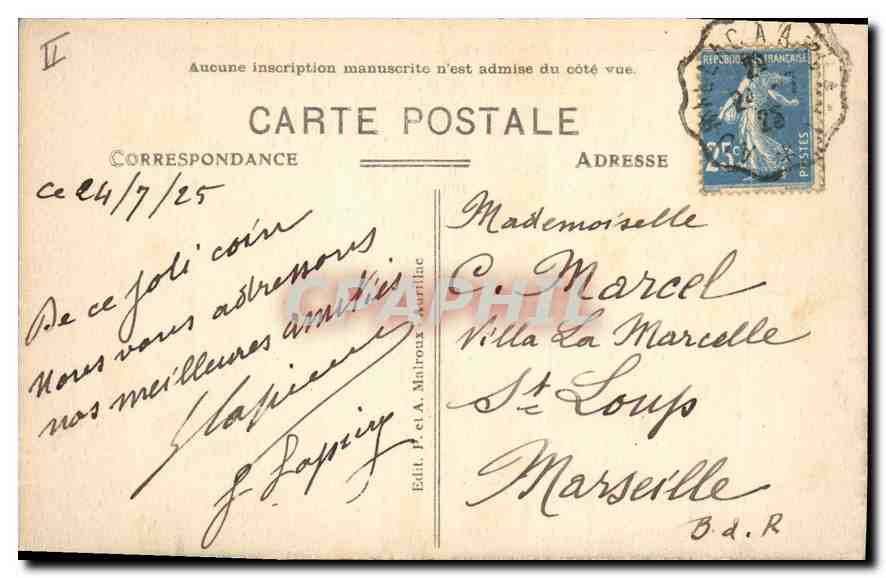 II
Aucune inscription manuscrite n'est admise du côté vue.
CARTE POSTALE
CORRESPONDANCE
ADRESSE
REPUBLIQUE FRANÇAISE
25c
POSTES
ce 24/7/25
De ce joli coin
nous vous adressons
nos meilleures amitiés
Edit. P. et A. Malroux - Aurillac
CPAPHIL
Mademoiselle
C. Marcel
Villa La Marcelle
St Loup
Marseille
B. d. R